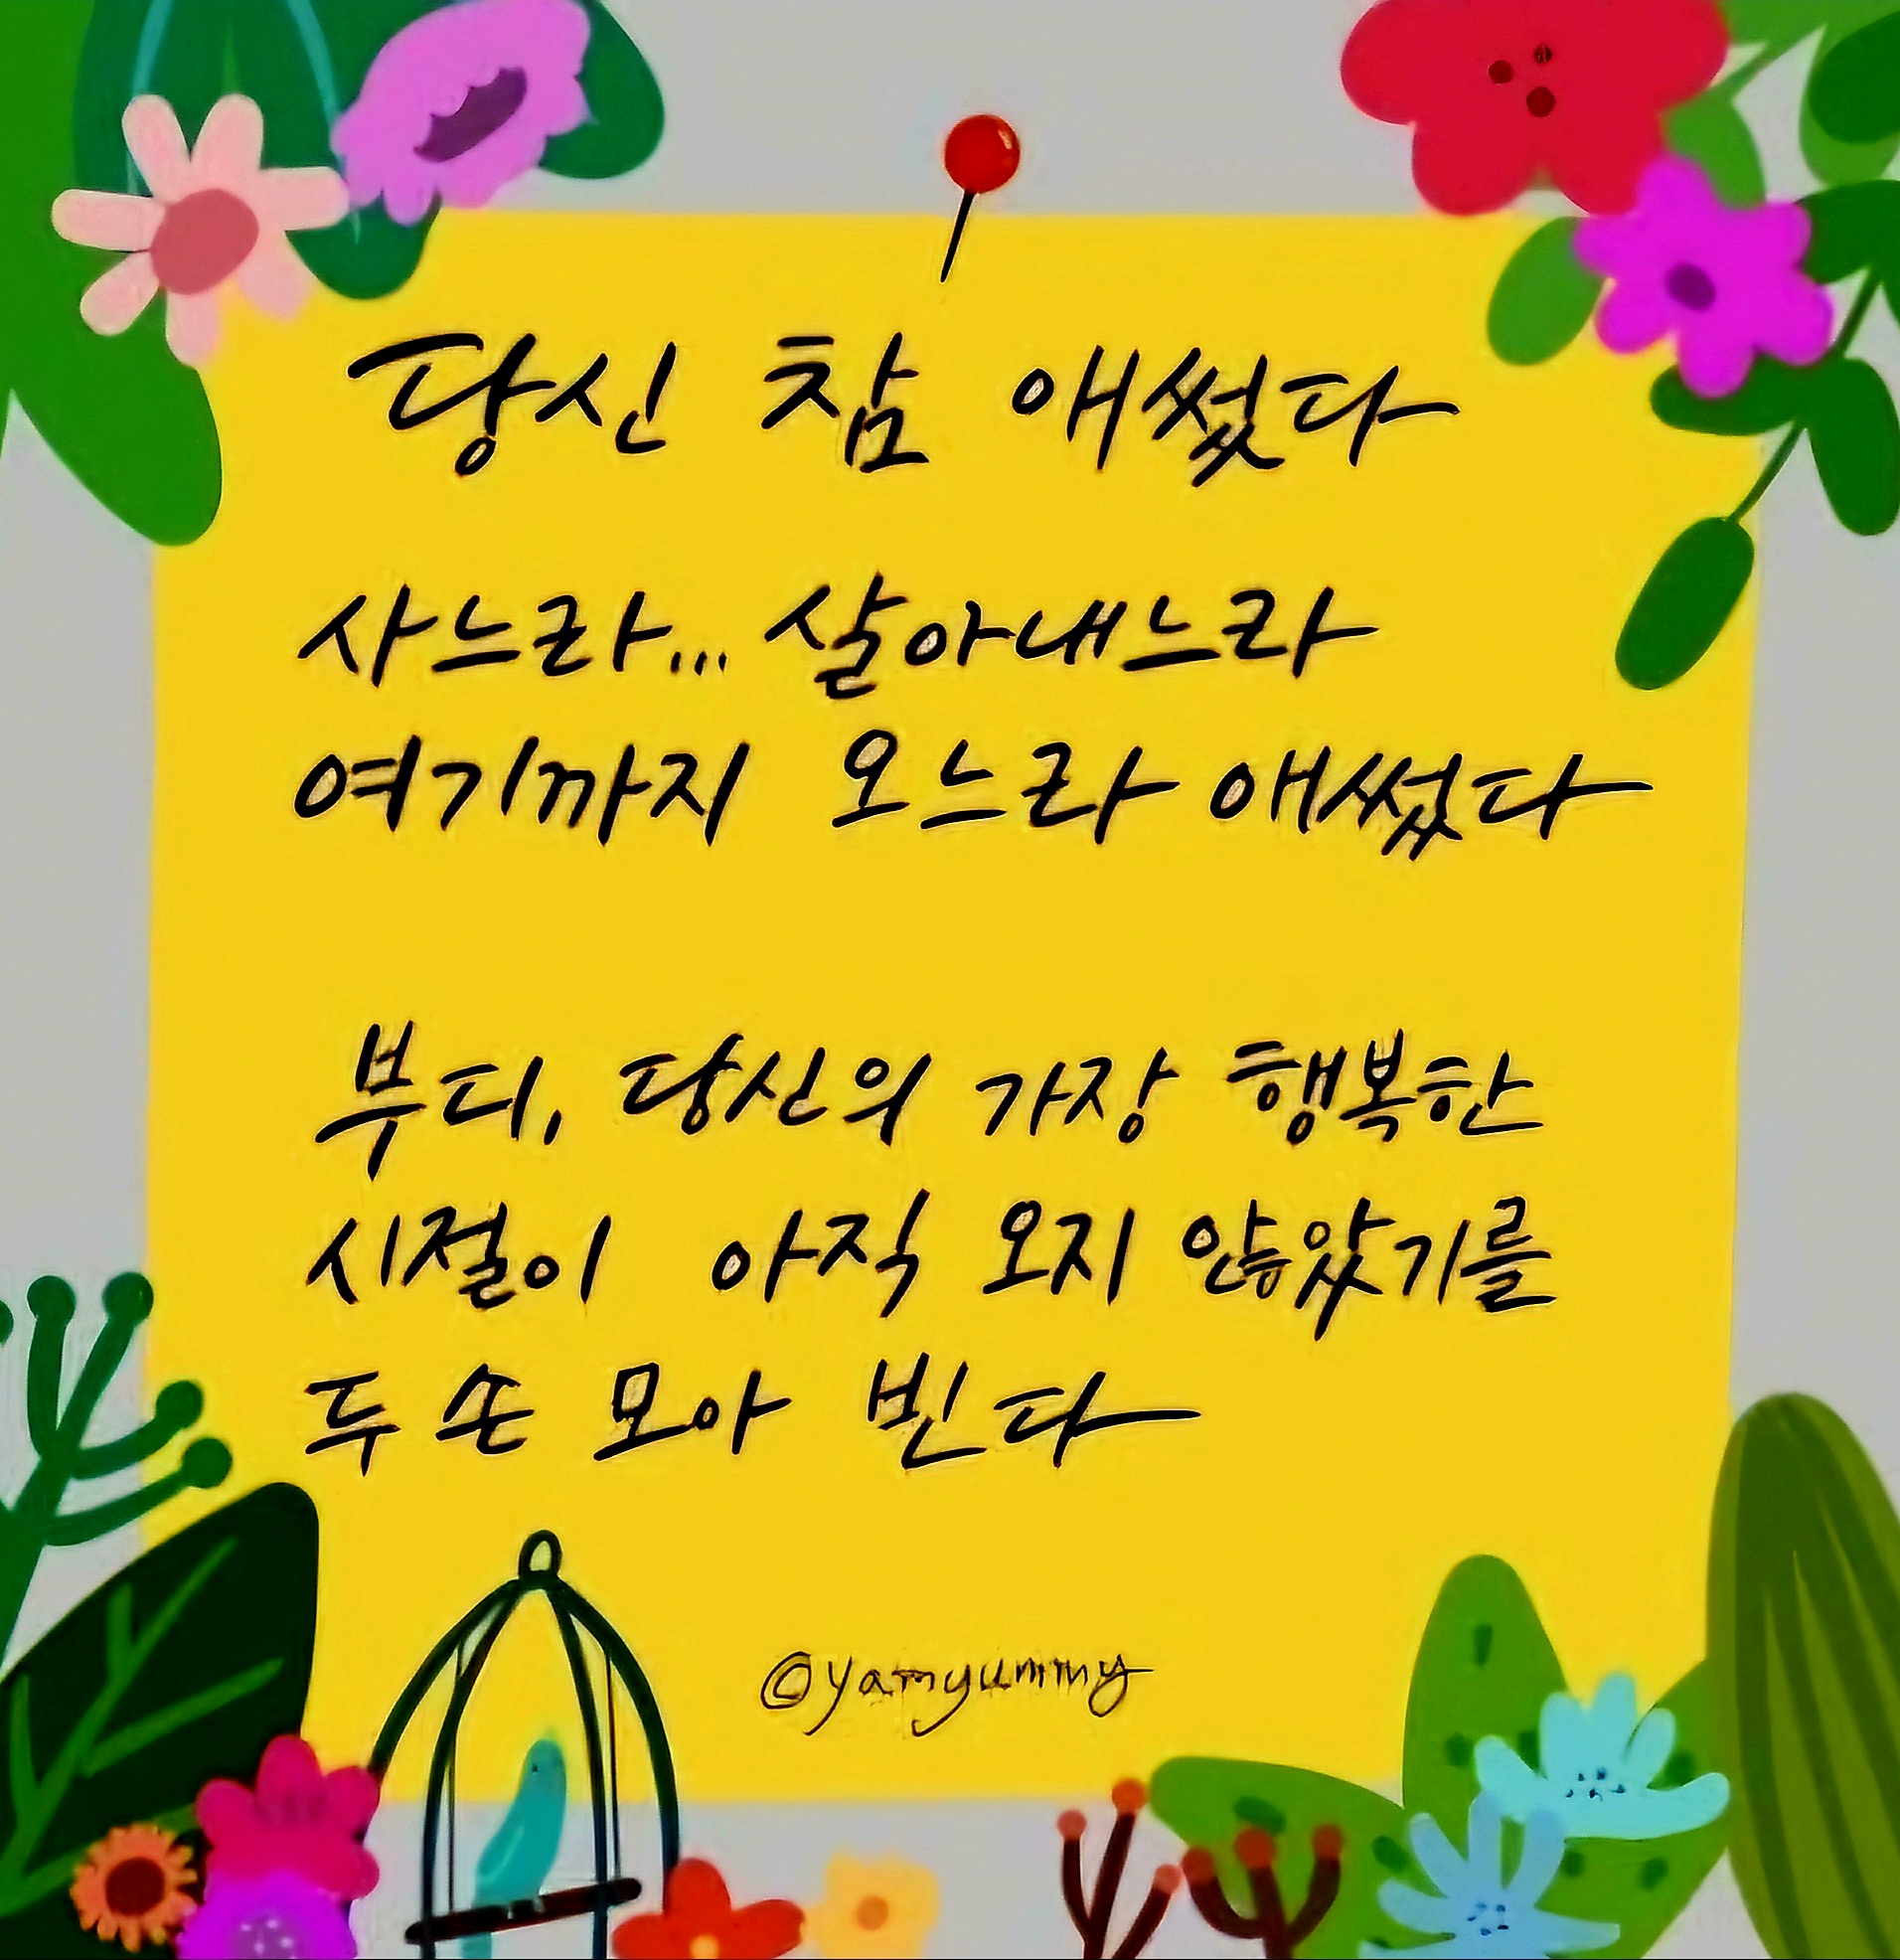 당신 참 애썼다
사느라... 살아내느라
여기까지 오느라 애썼다
부디, 당신의 가장 행복한
시절이 아직 오지 않았기를
두 손 모아 빈다
©yamyummy